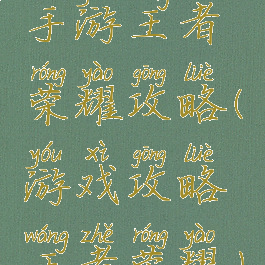 手游王者
róng yào gōng lüè
荣耀攻略(
yóu xì gōng lüè
游戏攻略
wáng zhě róng yào
王者荣耀)